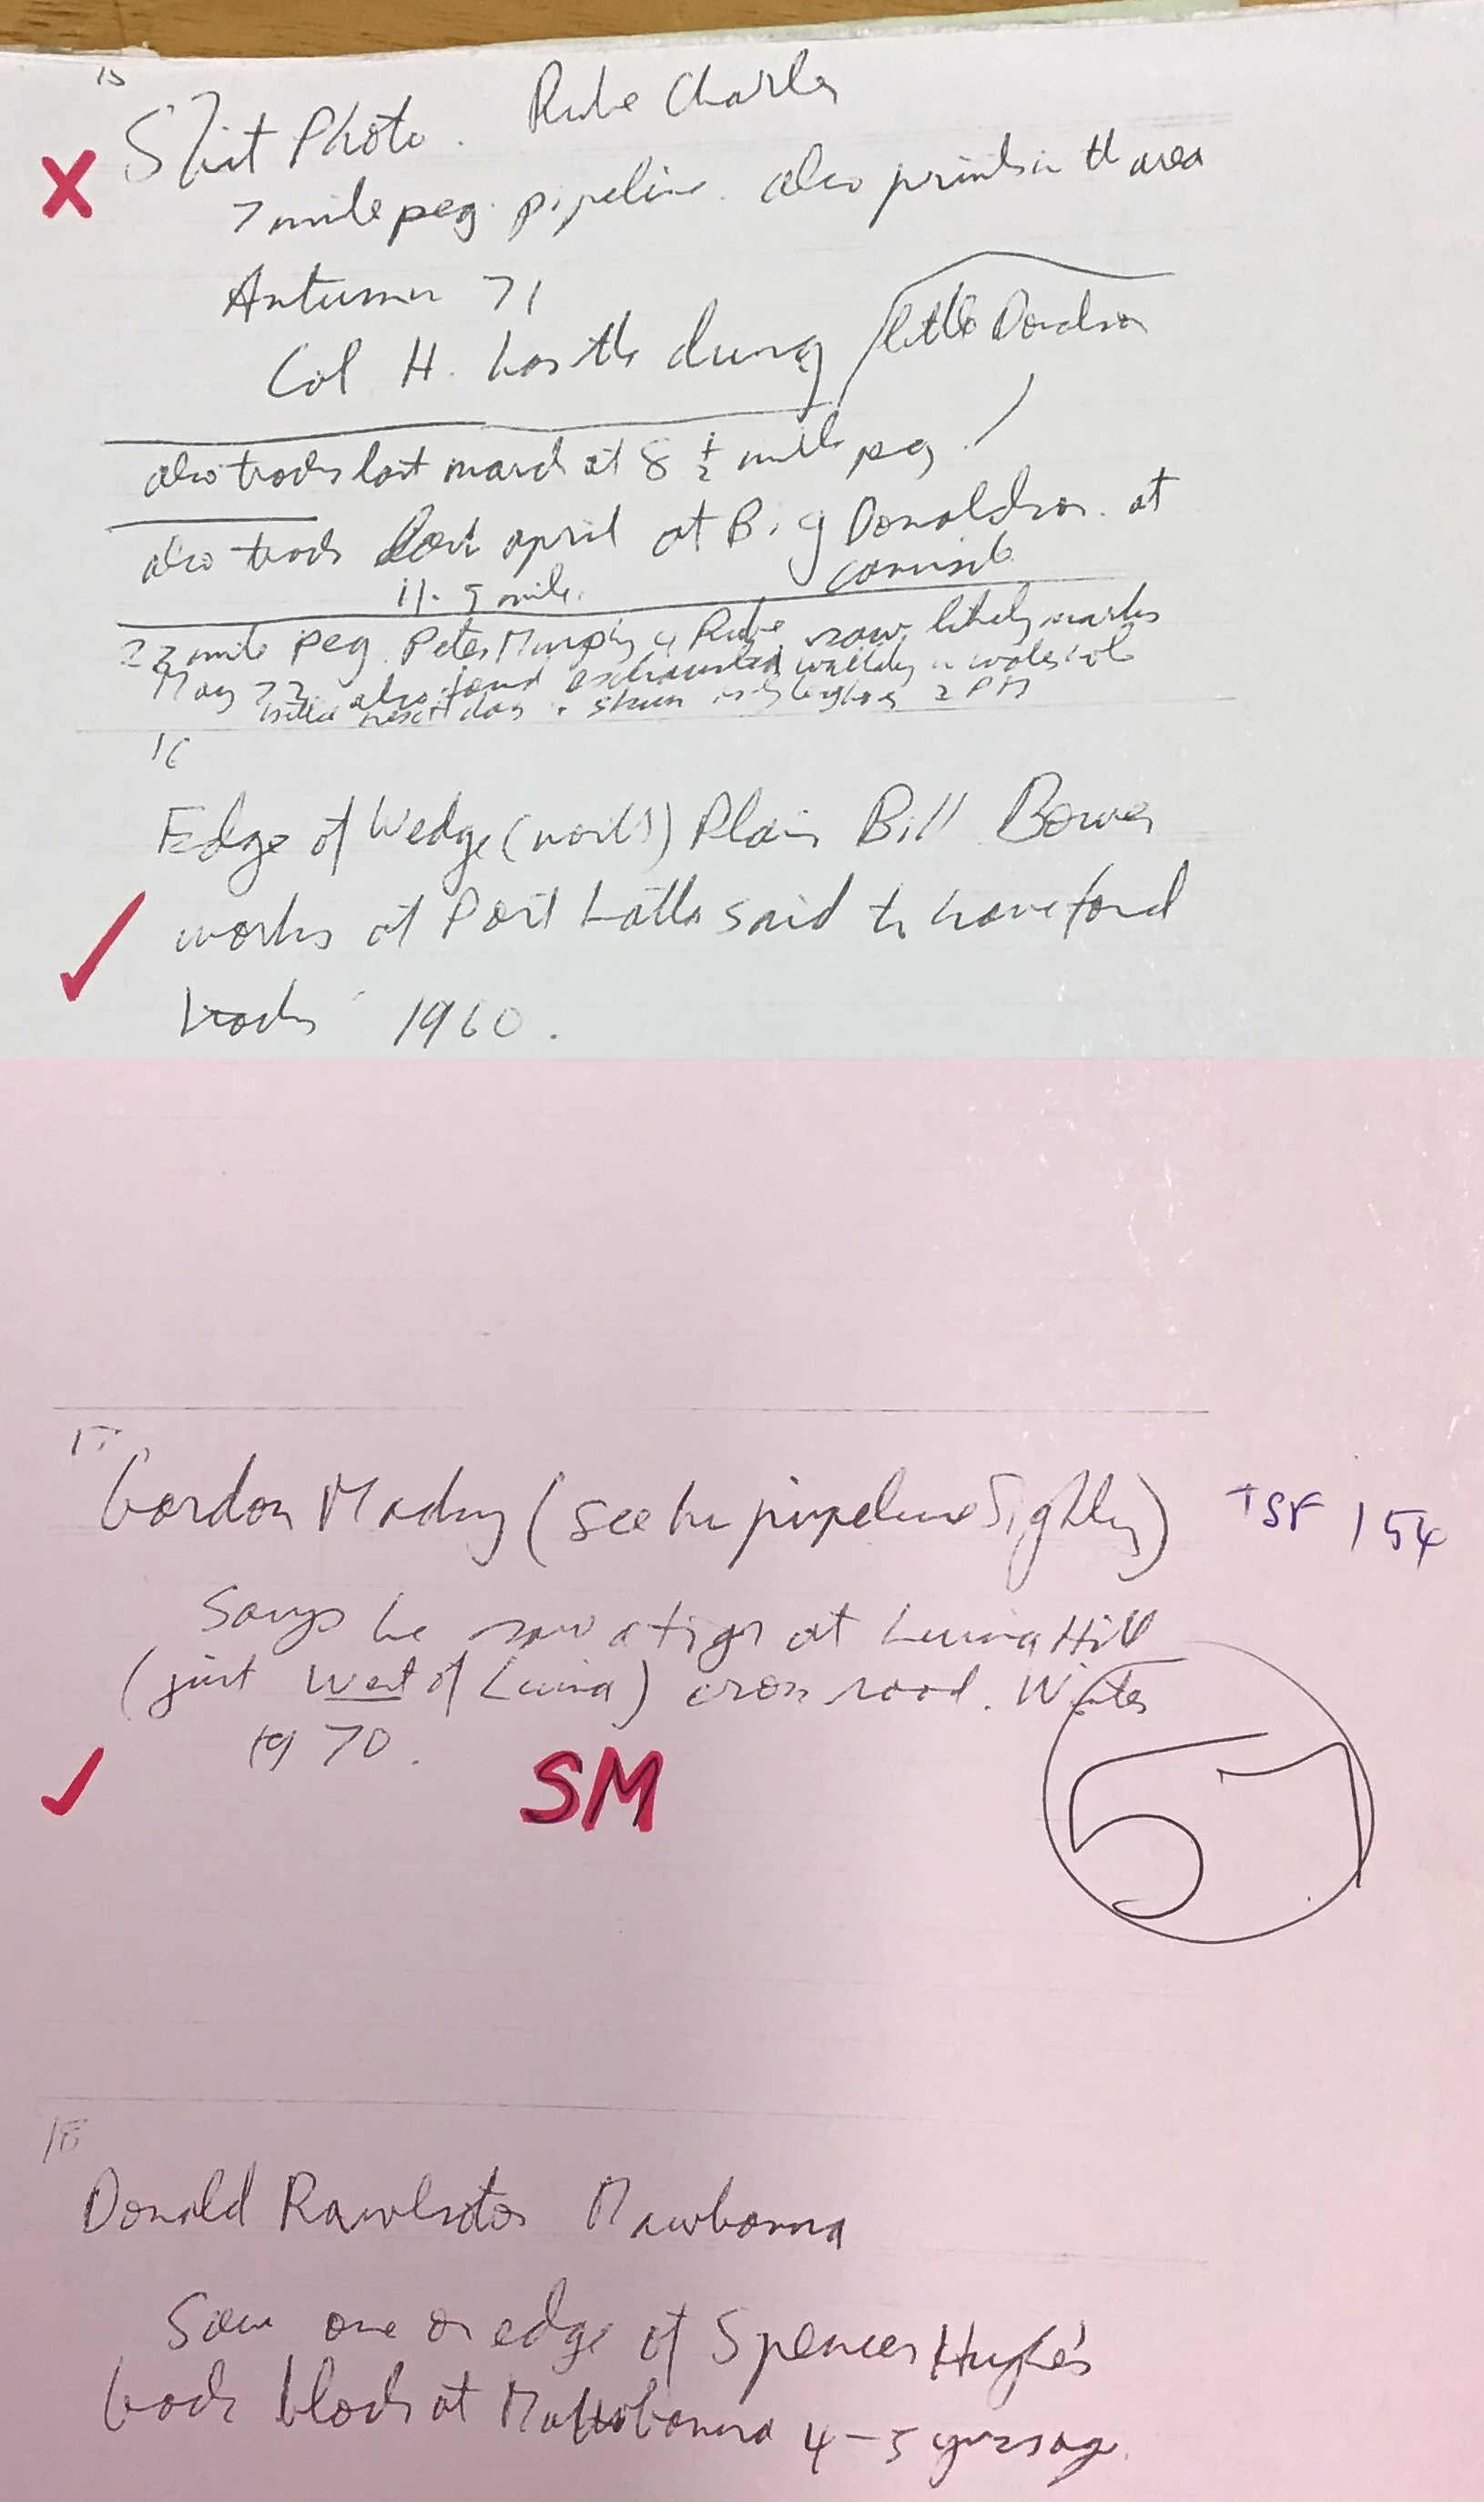 15
Shit Photo. Rube Charles
X
7 mile peg. pipeline. also prints in th area
Autumn 71
Col H. has the dung
little Donalson
also tracks last march at 8 ½ mile peg.
also tracks last april at Big Donaldson. at
11.5 mile.
22 mile peg. Peter Murphy & Rube saw likely marks
May 72. also found exhausted wallaby in waterhole
next day. 2 PM
16
Edge of Wedge (north) Plain Bill Bower
works at Port Latta said to have fond
tracks 1960.
17
Gordon (see his pipeline Sighting) TSF 154
Says he saw a tiger at Luina Hill
(just West of Luina) cross road. Winter
1970.
SM
57
18
Donald Rawlston Mawbanna
Saw one on edge of Spencer Hughe's
back block at Mawbanna 4-5 years ago.